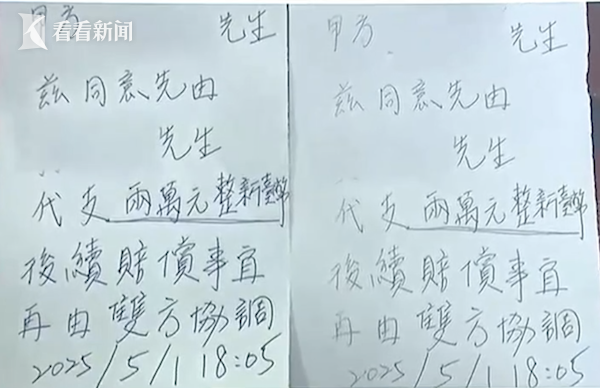 看看新闻
甲方 先生
兹同意先由
先生
代支 兩萬元整新臺幣
後續賠償事宜
再由雙方協調
2025/5/1 18:05
甲方 先生
兹同意先由
先生
代支 兩萬元整新臺幣
後續賠償事宜
再由雙方協調
2025/5/1 18:05